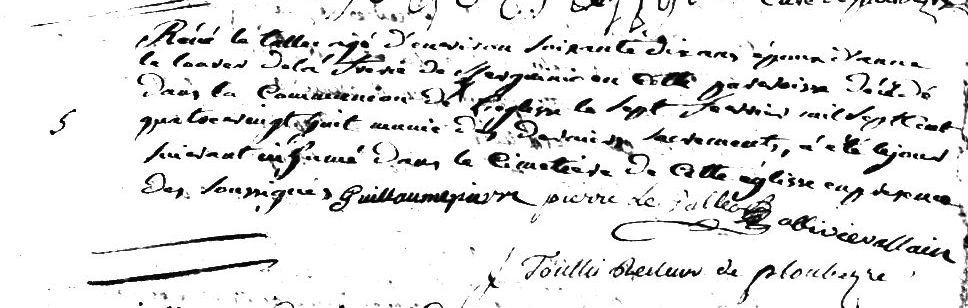 René le tallec agé d'environ soixante dix ans époux d'anne
le louer de la frerie de Kerguiniou en cette paroisse décédé
dans la Communion de l'églisse le sept fevrier mil sept cent
quatre vingt huit munie des derniers sacrements, a été le jour
suivant inhumé dans le Cimetière de cette églisse en presence
des soussignés Guillaume pierre pierre Le ollivier allain
5
Recteur de ploubezre